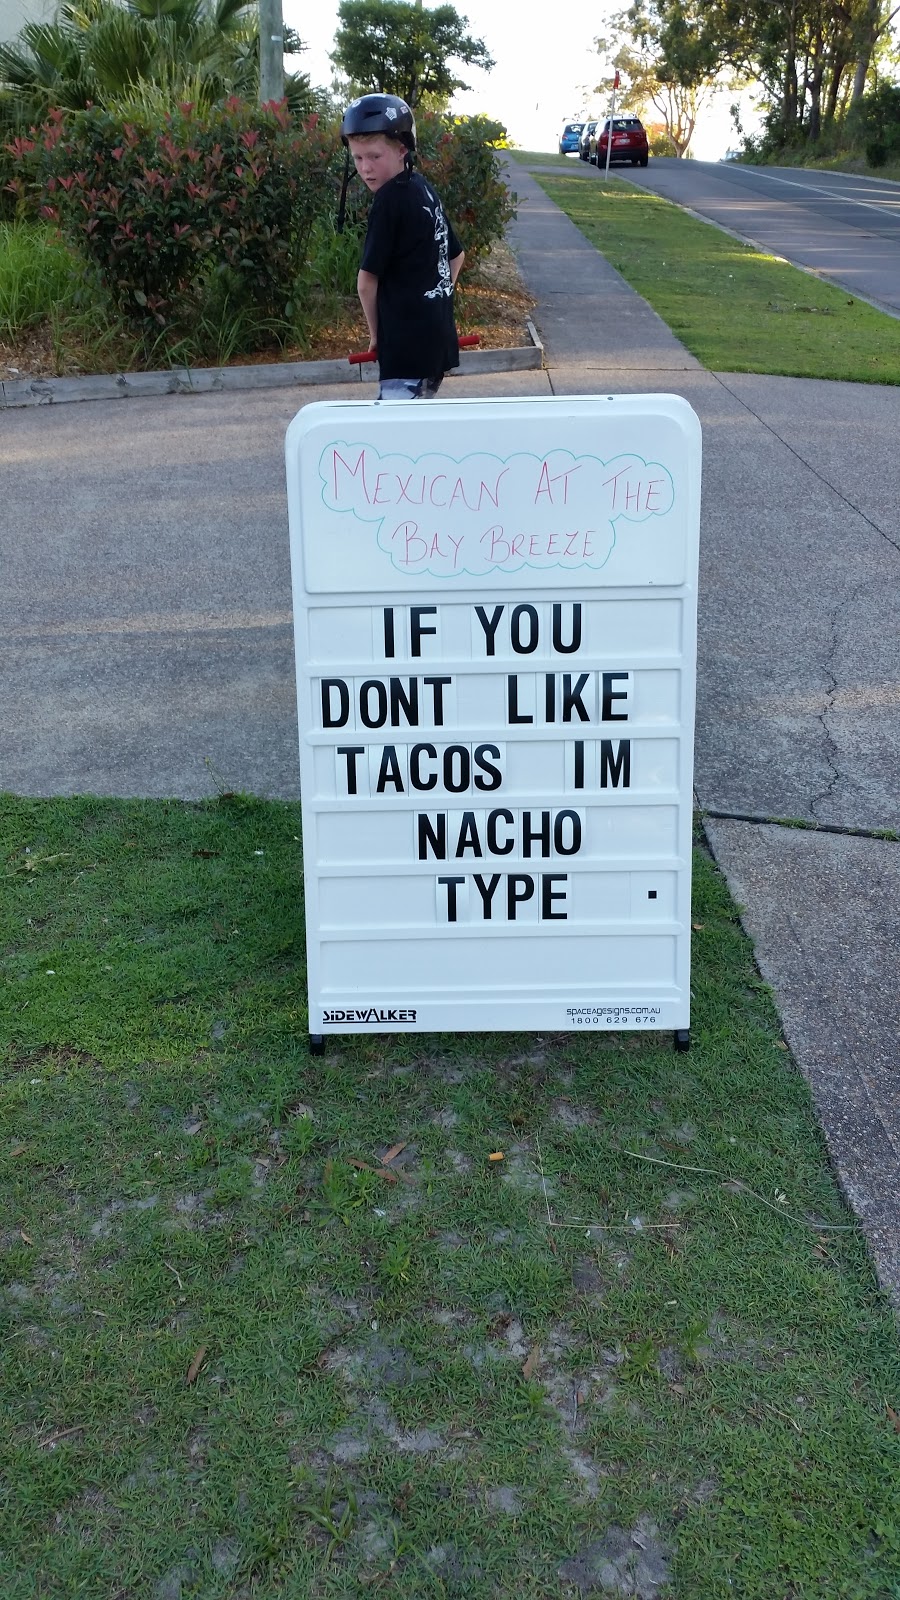 MEXICAN AT THE
BAY BREEZE
IF YOU
DONT LIKE
TACOS IM
NACHO
TYPE .
SiDEWALKER
spaceagesigns.com.au
1800 629 676